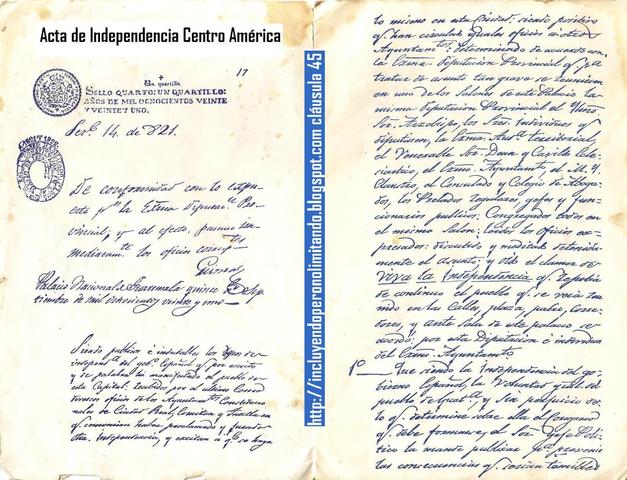 Acta de Independencia Centro América
17
Un quartillo
SELLO QUARTO: UN QUARTILLO:
AÑOS DE MIL OCHOCIENTOS VEINTE
Y VEINTE Y UNO.
14 de 821.
De conformidad con lo
la
y al efecto,
los oficios
Palacio Nacional de Guatemala quince de Sep
tiembre de mil ochocientos veinte y uno
Siendo publicos é indudables los deseos de
independª del gobº Español qº por escrito
y de palabra ha manifestado el pueblo de
esta Capital: recibidos por el ultimo Correo
oficios de los Ayuntamtos Constitucio
nales de Ciudad Real, Comitan y Tuxtla en
qº comunican haber proclamado y jurado
dha. independencia, y excitan á qº se haga
http://incluyendoperonolimitando.blogspot.com cláusula 45
lo mismo en esta Ciudad: siendo positivo
qº han circulado iguales oficios á otros
Ayuntamtos: determinado de acuerdo con
la Exma. Diputacion Provincial qº pª
tratar de asunto tan grave se reuniesen
en uno de los Salones de este Palacio la
misma Diputacion Provincial, el Illmo
Sor. Arzobispo, los Sres. individuos qº
diputasen, la Exma. Audª territorial,
el Venerable Sor. Dean y Cavildo Ecle-
siastico, el Exmo. Ayuntamto, el M. Y.
Claustro, el Consulado y Colegio de Aboga-
dos, los Prelados regulares, gefes y fun-
cionarios publicos: Congregados todos en
el mismo Salon: leidos los oficios ex-
presados: discutido y meditado detenida-
mente el asunto; y oido el clamor de
Viva la Independencia qº repetia
de continuo el pueblo qº se veia reu-
nido en las Calles, plaza, patio, Corre-
dores, y ante Sala de este palacio se
acordó: por esta Diputacion é individuos
del Exmo. Ayuntamto
1º Que siendo la Independencia del go-
bierno Español, la Voluntad gral. del
pueblo de Guatª y sin perjuicio de
lo qº determine sobre ella el Congreso
qº debe formarse, el Sor. Gefe Poli-
tico la mande publicar pª prevenir
las consecuencias qº serian temibles